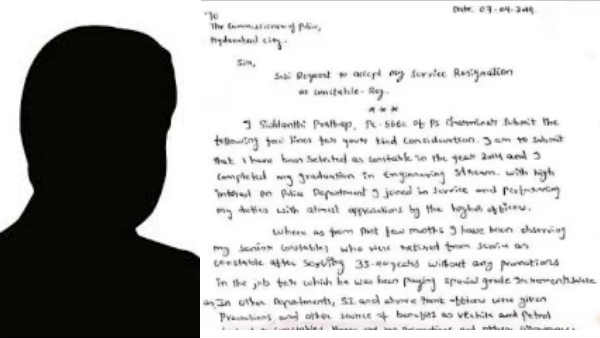 Date. 07-09-2019.
To
The Commissioner of Police,
Hyderabad city.
Sir,
Sub: Request to accept my Service Resignation
as constable - Reg.
***
I Siddanthi Prathap, Pc-5662 of PS Charminar submit the
following few lines for your kind consideration. I am to submit
that I have been selected as constable in the year 2014 and I
completed my graduation in Engineering stream. With high
interest on Police Department I joined in service and performing
my duties with almost appreciations by the higher officers.
Where as from past few months I have been observing
my senior constables who were retired from service as
constable after serving 35-40 years without any promotions
in the job for which he was been paying special grade increments. Where
as In other Departments, SI and above rank officers were given
Promotions and other source of benefits as vehicle and Petrol